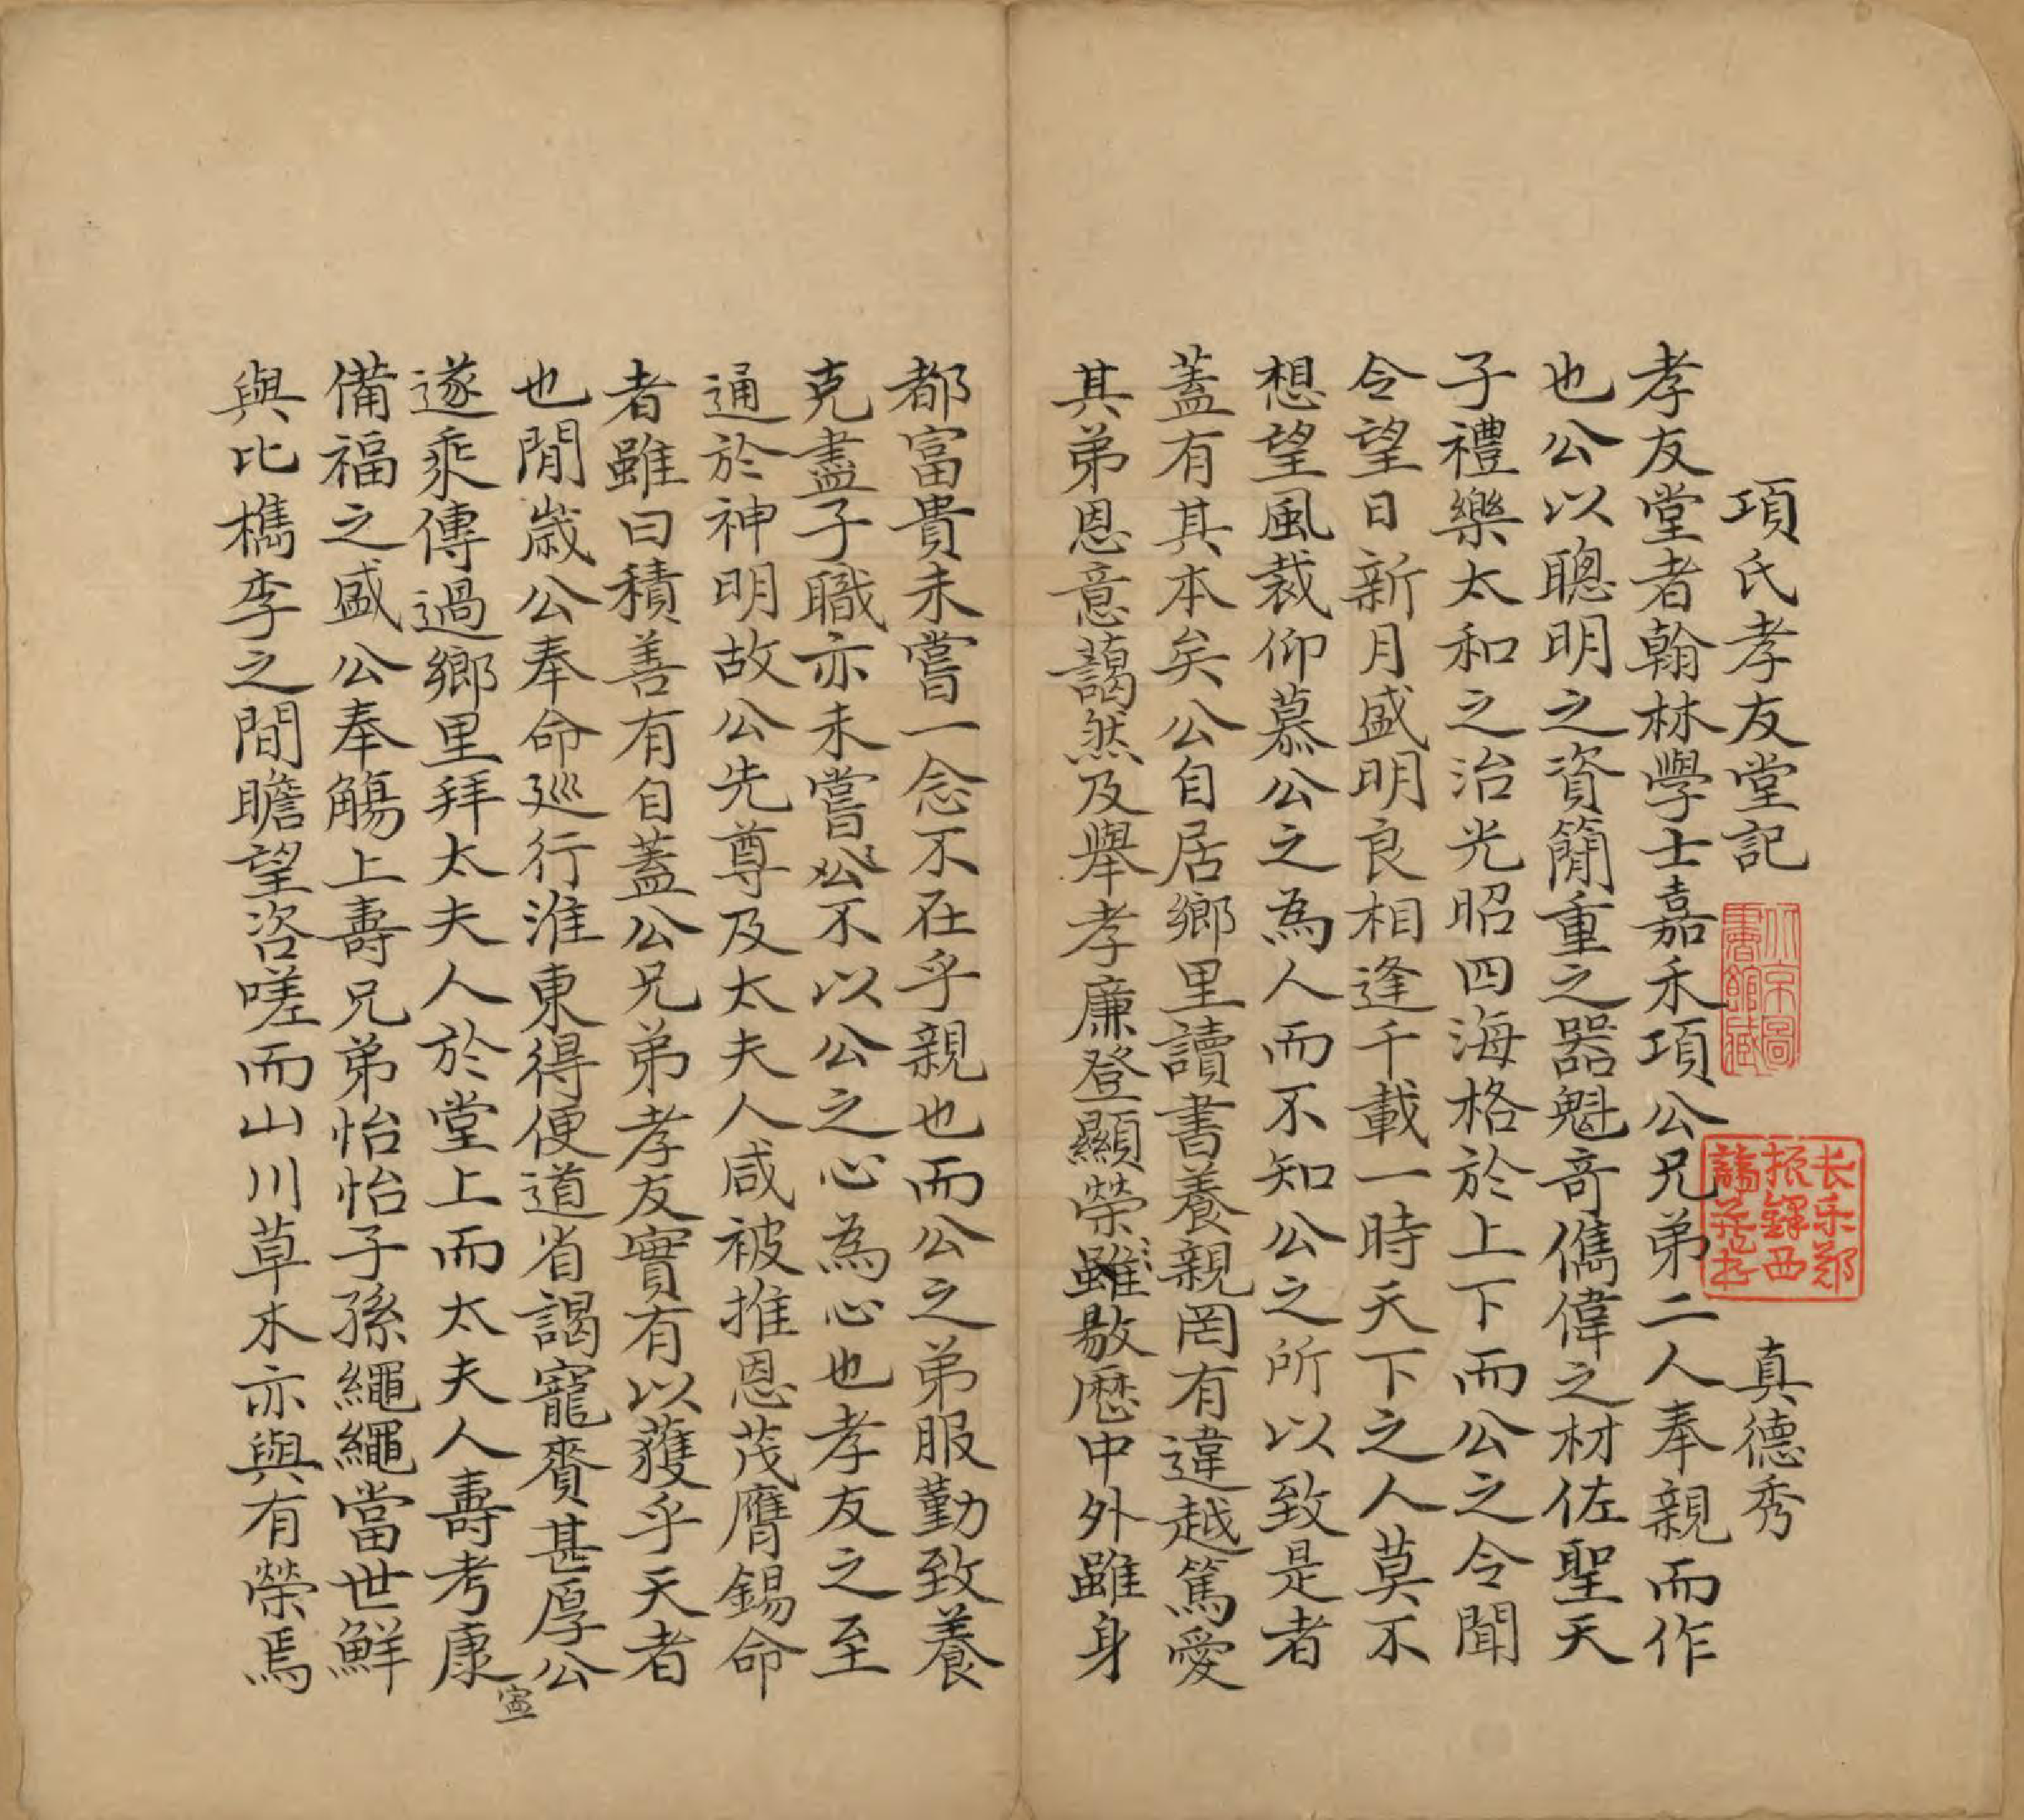 項氏孝友堂記 真德秀
孝友堂者翰林學士嘉禾項公兄弟二人奉親而作
也公以聰明之資簡重之器魁竒儁偉之材佐聖天
子禮樂太和之治光昭四海格於上下而公之令聞
令望日新月盛明良相逢千載一時天下之人莫不
想望風裁仰慕公之為人而不知公之所以致是者
蓋有其本矣公自居鄉里讀書養親罔有違越篤愛
其弟恩意藹然及舉孝廉登顯榮雖敭歷中外雖身
都富貴未嘗一念不在乎親也而公之弟服勤致養
克盡子職亦未嘗公不以公之心為心也孝友之至
通於神明故公先尊及太夫人咸被推恩茂膺錫命
者雖曰積善有自蓋公兄弟孝友實有以獲乎天者
也閒歲公奉命巡行淮東得便道省謁寵賚甚厚公
遂乘傳過鄉里拜太夫人於堂上而太夫人壽考康
寍
備福之盛公奉觴上壽兄弟怡怡子孫繩繩當世鮮
與比檇李之間瞻望咨嗟而山川草木亦與有榮焉
北京圖書館藏
长乐郑振铎西諦藏书